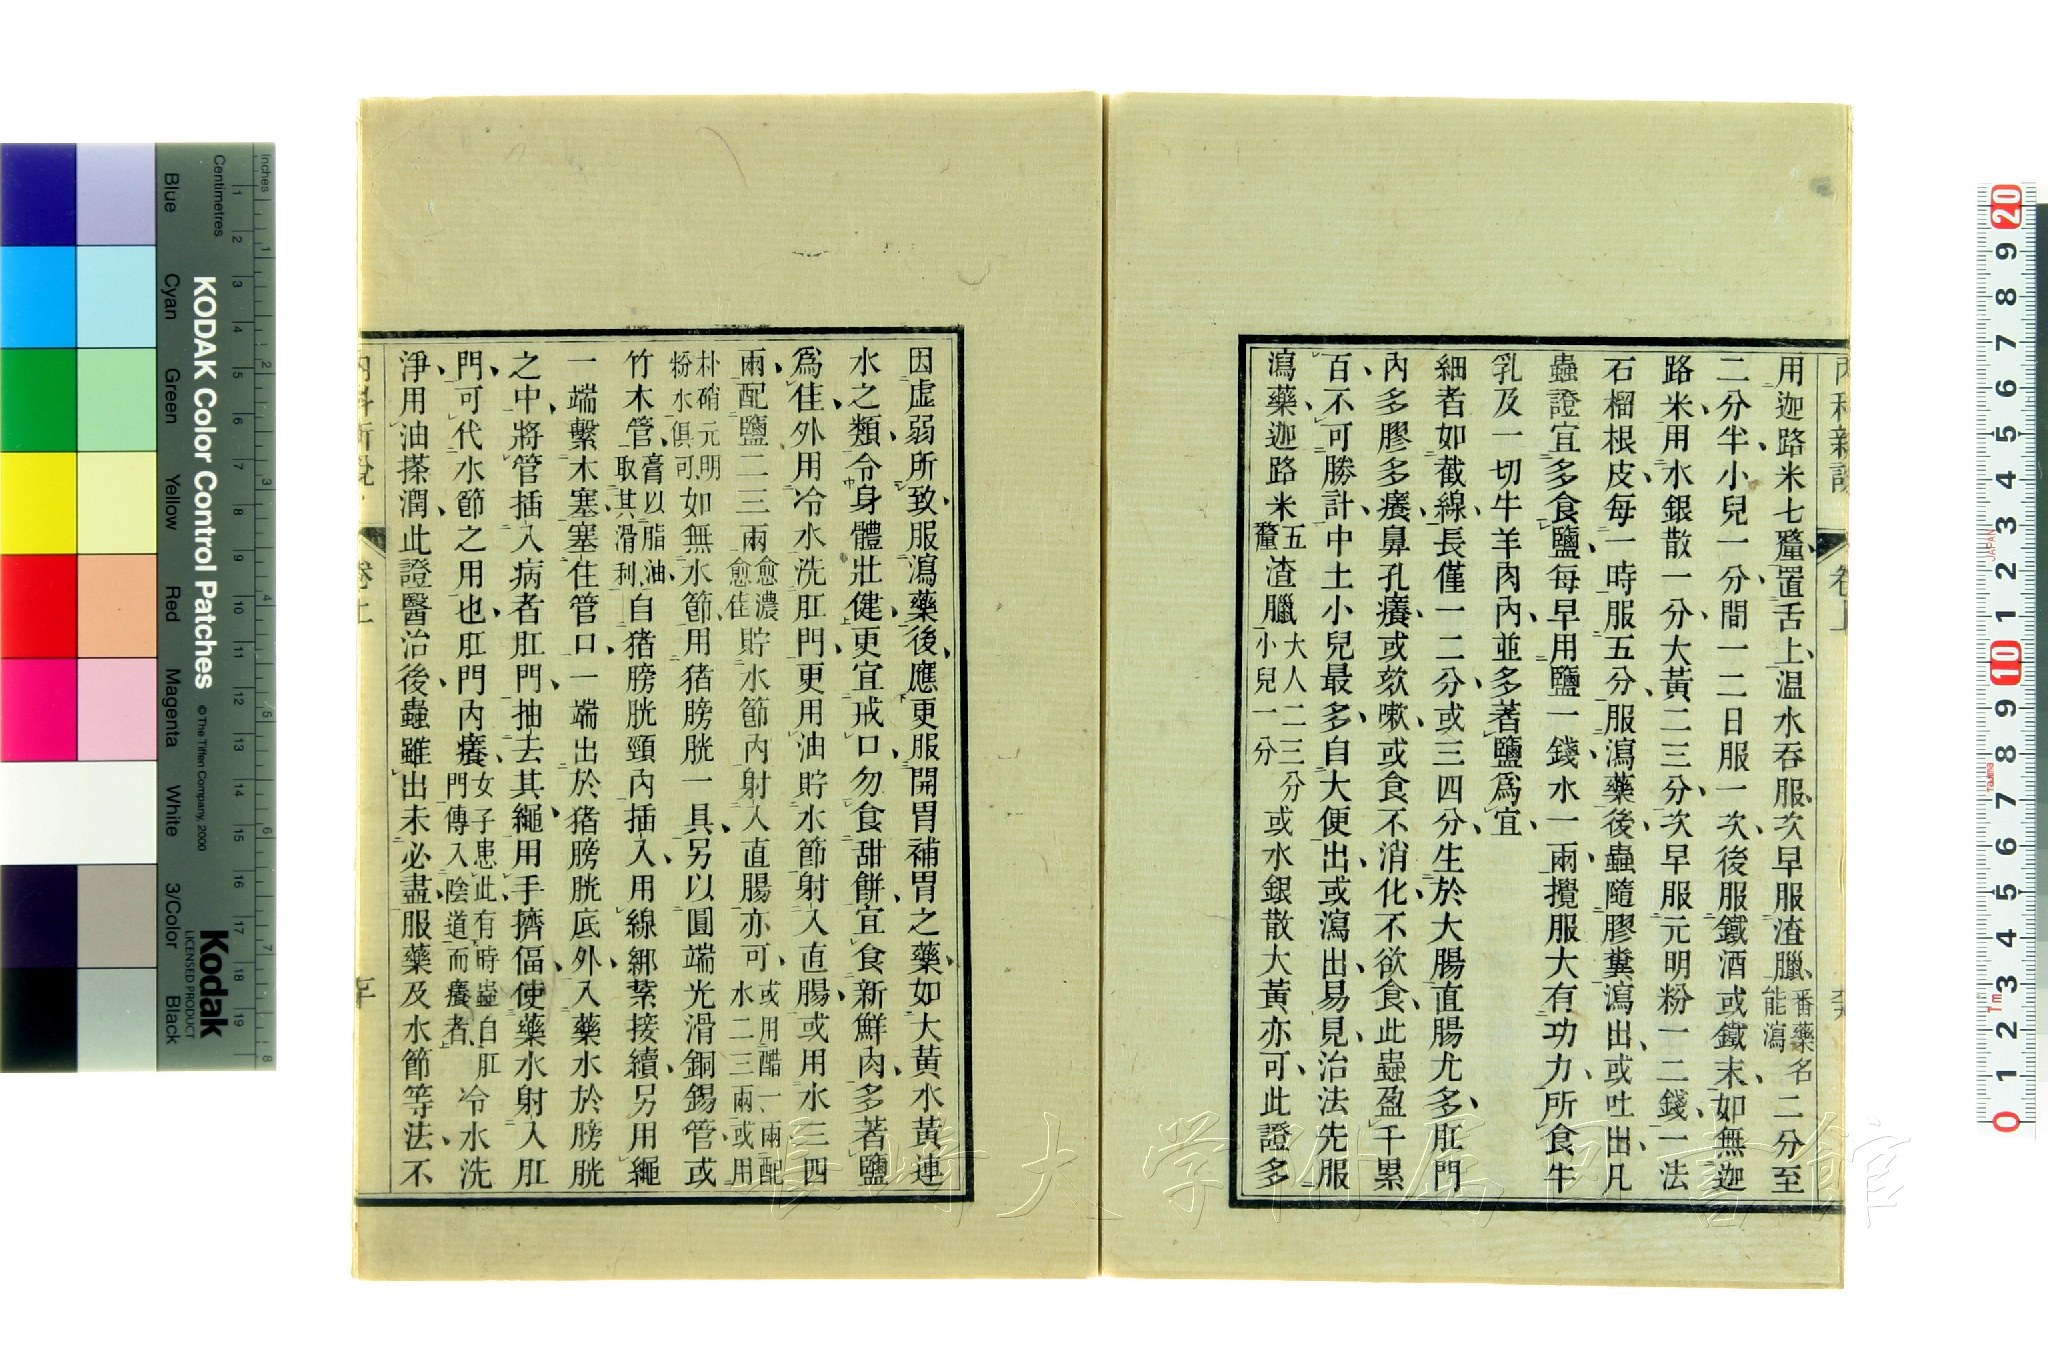 內科新說
卷上
用迦路米七釐置舌上温水吞服次早服渣臘番藥名能瀉二分至
二分半小兒一分間一二日服一次後服鐵酒或鐵末如無迦
路米用水銀散一分大黃二三分次早服元明粉一二錢一法
石榴根皮每一時服五分服瀉藥後蟲隨膠糞瀉出或吐出凡
蟲證宜多食鹽每早用鹽一錢水一兩攪服大有功力所食牛
乳及一切牛羊肉內並多著鹽爲宜
細者如截線長僅一二分或三四分生於大腸直腸尤多肛門
內多膠多癢鼻孔癢或欬嗽或食不消化不欲食此蟲盈千累
百不可勝計中土小兒最多自大便出或瀉出易見治法先服
瀉藥迦路米五釐渣臘大人二三分小兒一分或水銀散大黃亦可此證多
因虛弱所致服瀉藥後應更服開胃補胃之藥如大黃水黃連
水之類令身體壯健更宜戒口勿食甜餅宜食新鮮肉多著鹽
爲佳外用冷水洗肛門更用油貯水節射入直腸或用水三四
兩配鹽二三兩愈濃愈佳貯水節內射入直腸亦可或用醋一兩配水二三兩或用
朴硝元明粉水俱可如無水節用猪膀胱一具另以圓端光滑銅錫管或
竹木管膏以脂油取其滑利自猪膀胱頸內插入用線綁紥接續另用繩
一端繫木塞塞住管口一端出於猪膀胱底外入藥水於膀胱
之中將管插入病者肛門抽去其繩用手擠偪使藥水射入肛
門可代水節之用也肛門內癢女子患此有時蟲自肛門傳入陰道而癢者冷水洗
淨用油搽潤此證醫治後蟲雖出未必盡服藥及水節等法不
內科新說
卷上
長崎大学附属図書館
KODAK Color Control Patches
© The Tiffen Company, 2000
Kodak
LICENSED PRODUCT
Inches
Centimetres
Blue
Cyan
Green
Yellow
Red
Magenta
White
3/Color
Black
1 2 3 4 5 6 7 8 9 10 11 12 13 14 15 16 17 18 19
1 2 3 4 5 6 7 8
20 9 8 7 6 5 4 3 2 1 10 9 8 7 6 5 4 3 2 1 0
JAPAN